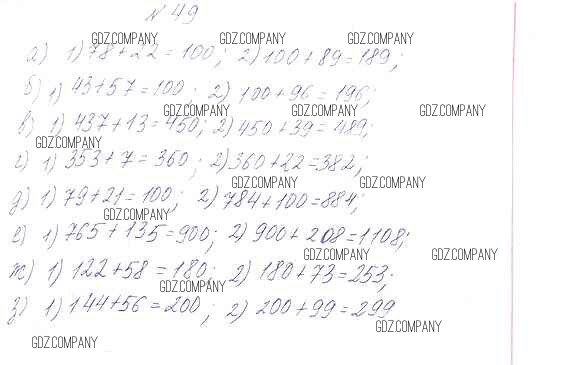 № 49
GDZ.COMPANY GDZ.COMPANY GDZ.COMPANY
а) 1) 78+22=100; 2) 100+89=189;
б) 1) 43+57=100; 2) 100+96=196;
GDZ.COMPANY GDZ.COMPANY GDZ.COMPANY
в) 1) 437+13=450; 2) 450+39=489;
GDZ.COMPANY
г) 1) 353+7=360; 2) 360+22=382;
GDZ.COMPANY GDZ.COMPANY
д) 1) 79+21=100; 2) 784+100=884;
GDZ.COMPANY
е) 1) 765+135=900; 2) 900+208=1108;
GDZ.COMPANY GDZ.COMPANY
ж) 1) 122+58=180; 2) 180+73=253;
GDZ.COMPANY
з) 1) 144+56=200; 2) 200+99=299
GDZ.COMPANY
GDZ.COMPANY